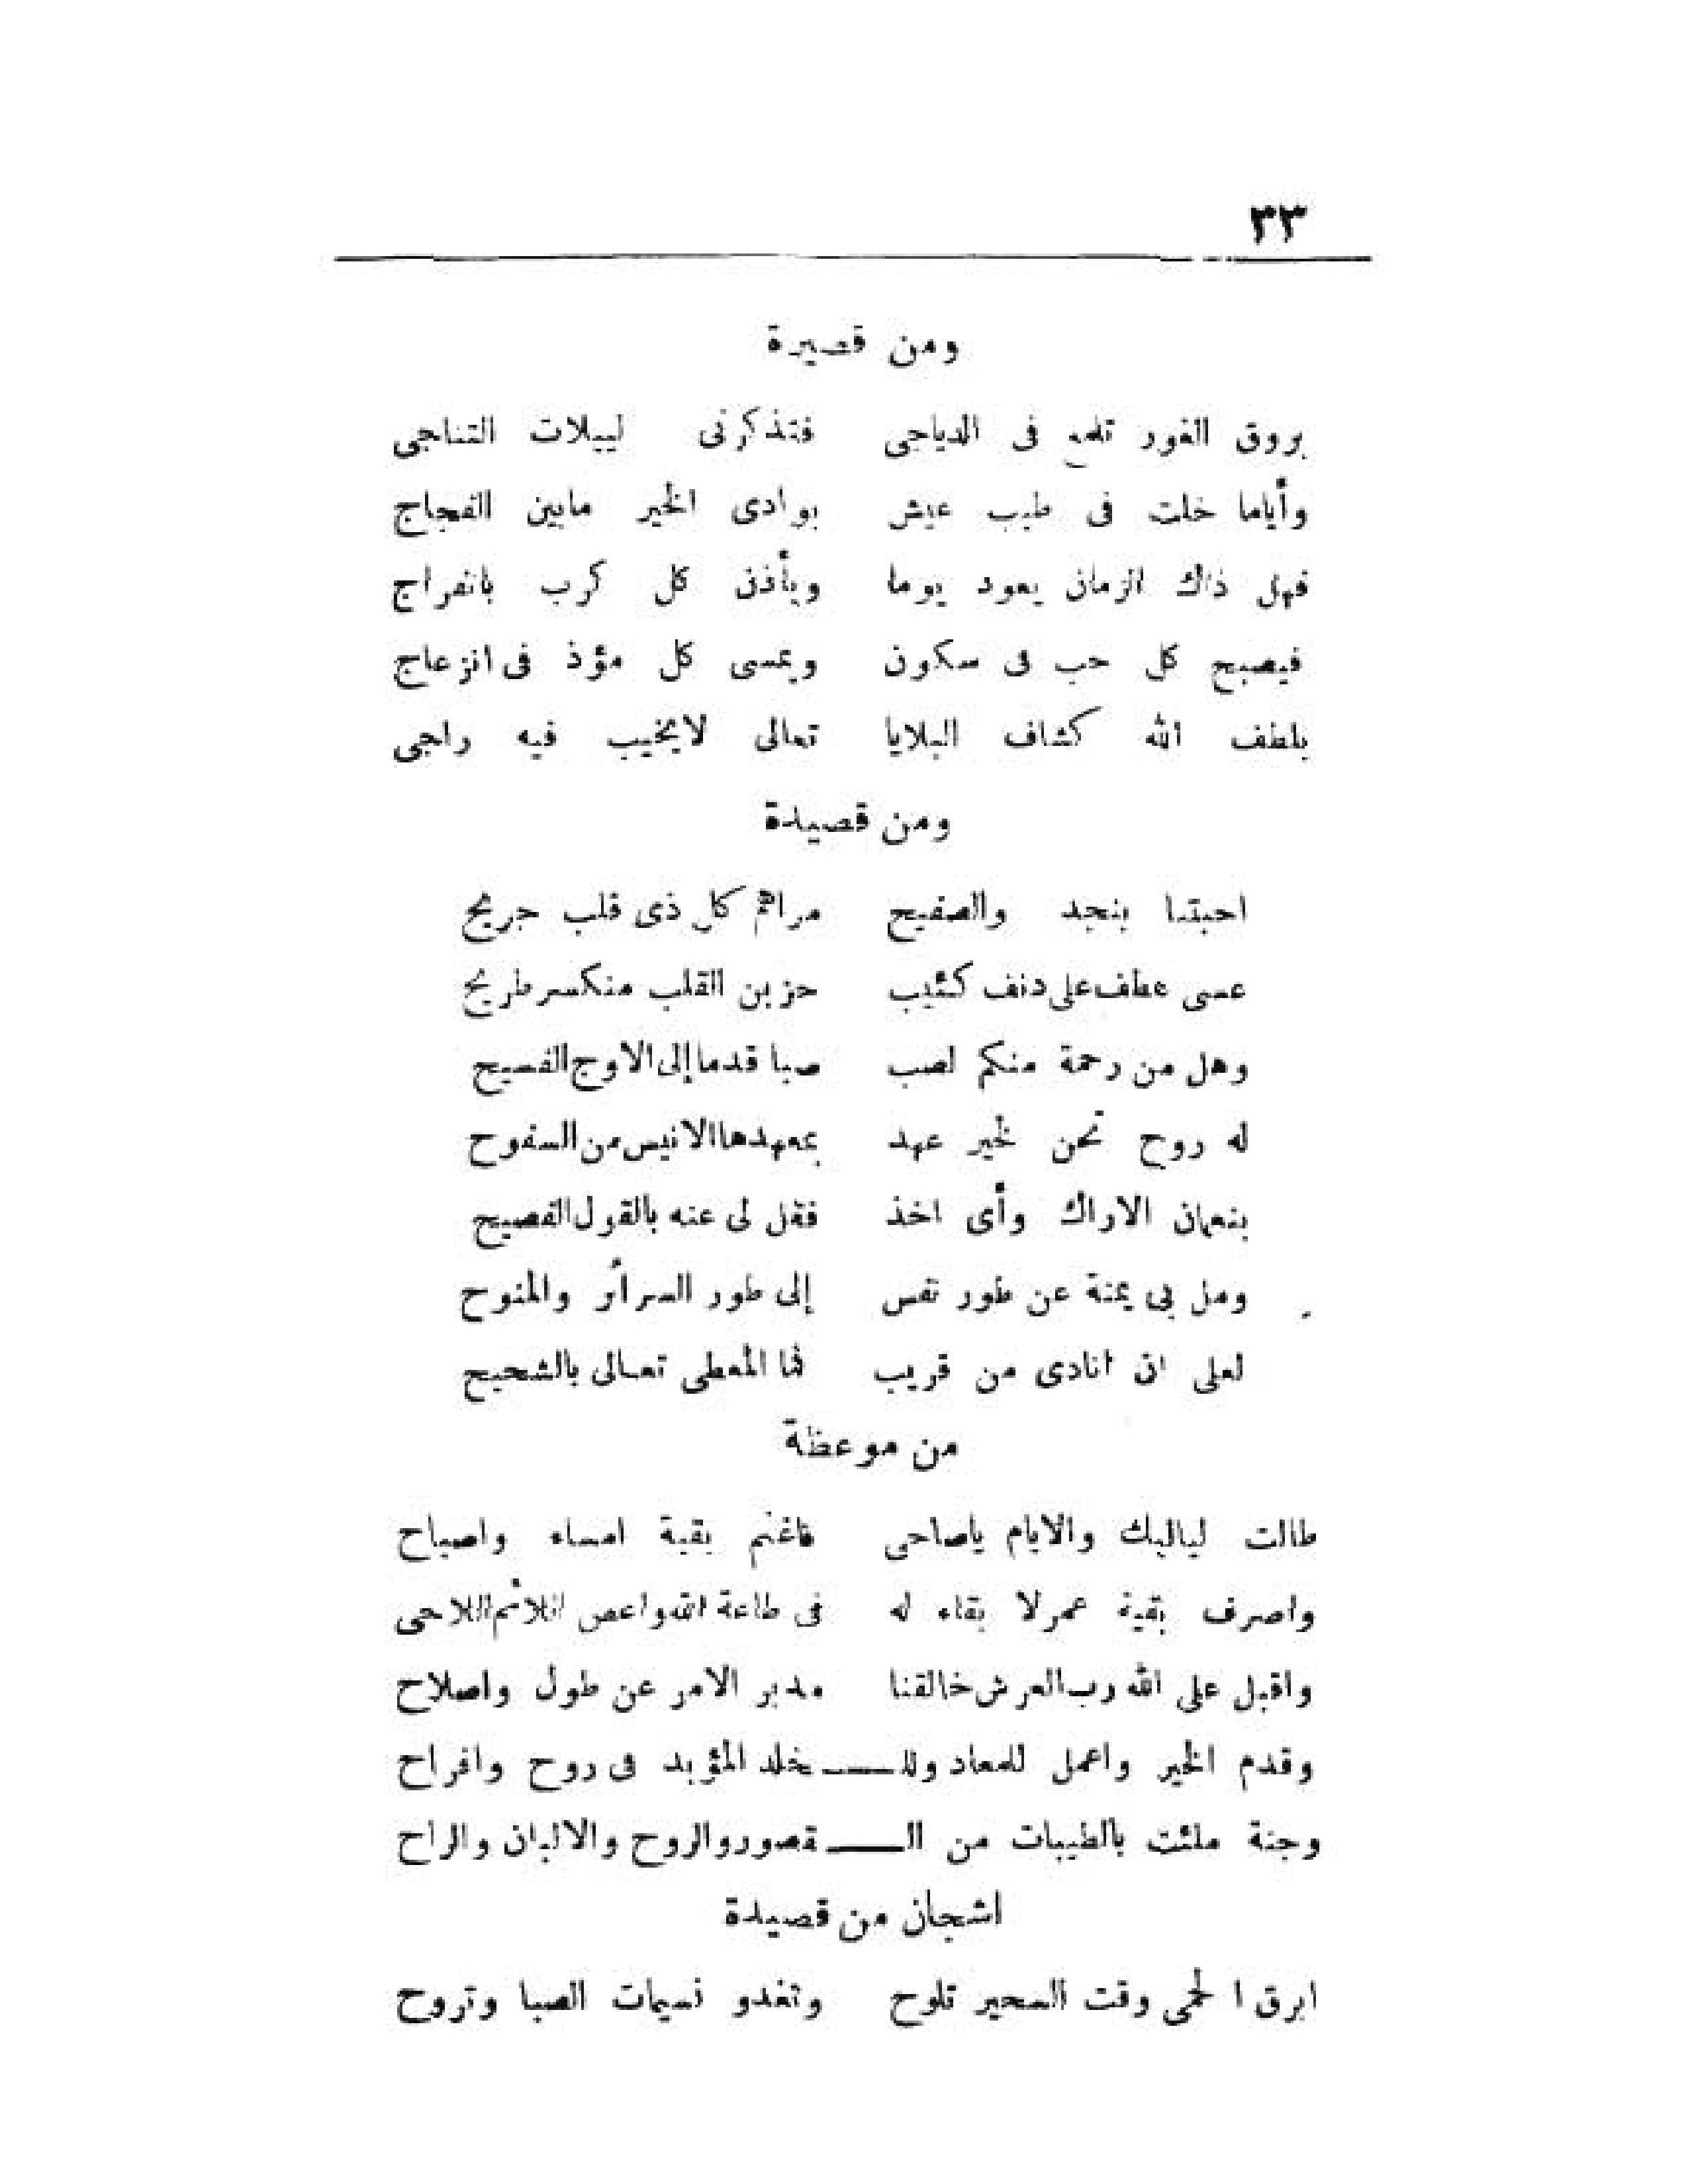 ٣٣
ومن قصيرة
بروق الغور تلمع فى الدياجى فتذكرنى لييلات التناجى
وأياما خلت فى طيب عيش بوادى الخير مابين الفجاج
فهل ذاك الزمان يعود يوما ويأذن كل كرب بانفراج
فيصبح كل حب فى سكون ويمسى كل مؤذ فى انزعاج
بلطف الله كشاف البلايا تعالى لايخيب فيه راجى
ومن قصيدة
احبتنا بنجد والصفيح مراهم كل ذى قلب جريح
عسى عطف على دنف كئيب حزين القلب منكسر طريح
وهل من رحمة منكم لصب صبا قدما إلى الاوج الفسيح
له روح تحن لخير عهد بمعهدها الانيس من السفوح
بنعمان الاراك وأى اخذ فقل لى عنه بالقول الفصيح
ومل بى يمنة عن طور نفس إلى طور السرائر والمنوح
لعلى ان انادى من قريب فما المعطى تعالى بالشحيح
من موعظة
طالت لياليك والايام ياصاحى فاغنم بقية امساء واصباح
واصرف بقية عمر لا بقاء له فى طاعة الله واعص اللائم اللاحى
واقبل على الله رب العرش خالقنا مدبر الامر عن طول واصلاح
وقدم الخير واعمل للمعاد وللـــــخلد المؤبد فى روح وافراح
وجنة ملئت بالطيبات من الـــــقصور والروح والالبان والراح
اشجان من قصيدة
ابرق الحمى وقت السحير تلوح وتغدو نسيمات الصبا وتروح